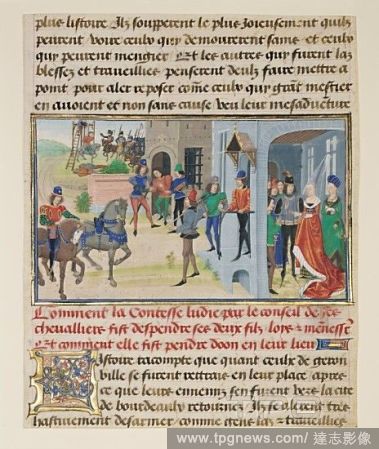 plus listoire Ilz soupperent le plus Joieusement quilz
peurent voire ceulx quy demourerent sains et ceulx
quy peurent mengier Et les autres quy furent las
blessez et travelliez penserent deulx faire mettre a
point pour aler reposer come ceulx quy grant mestier
en avoient et non sans cause veu leur mesadveture
Comment la Contesse ludie par le conseil de ses
chevalliers fist despendre ses deux filz
Et comment elle fist pendre doon en leur lieu
Istoire racompte que quant ceulx de geron
ville se furent retrais en leur place apres
ce que leurs ennemis se furent vers la cite
de bourdeaulx retournez Ilz se alerent tres
hastivement desarmer comme gens las et travelliez
www.tpgnews.com / 達志影像